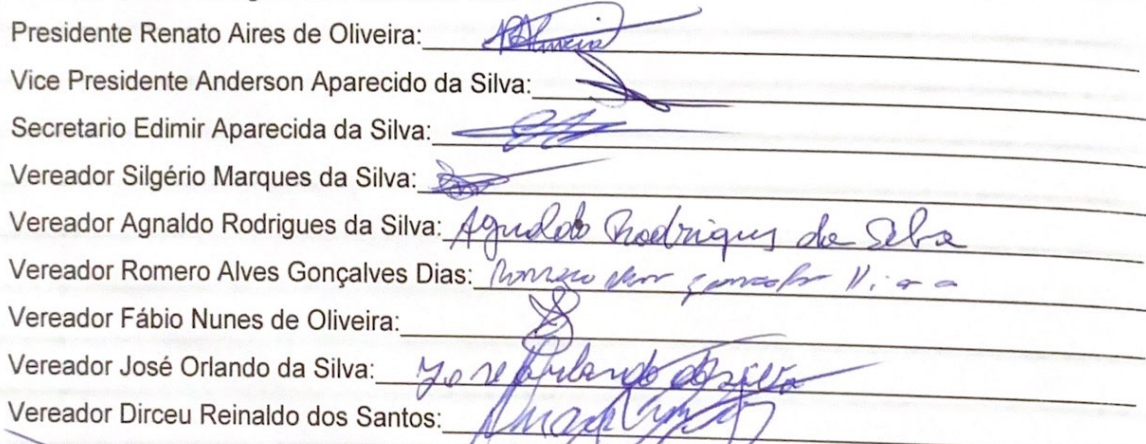 Presidente Renato Aires de Oliveira:
Vice Presidente Anderson Aparecido da Silva:
Secretario Edimir Aparecida da Silva:
Vereador Silgério Marques da Silva:
Vereador Agnaldo Rodrigues da Silva: Agnaldo Rodrigues da Silva
Vereador Romero Alves Gonçalves Dias:
Vereador Fábio Nunes de Oliveira:
Vereador José Orlando da Silva: José Orlando da Silva
Vereador Dirceu Reinaldo dos Santos: